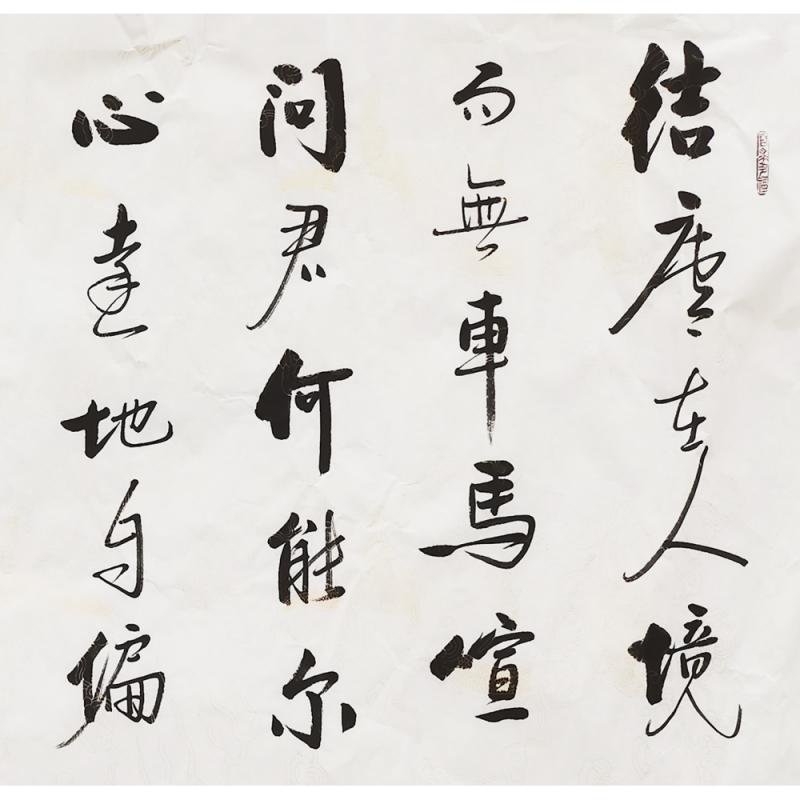 結廬在人境
而無車馬喧
問君何能尔
心遠地自偏